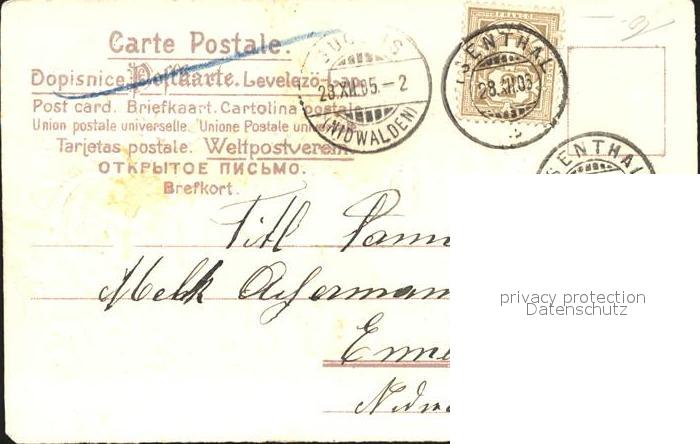 Carte Postale.
Dopisnice. Postkarte. Levelező-Lap.
Post card. Briefkaart. Cartolina postale.
Union postale universelle. Unione Postale
Tarjetas postale. Weltpostverein.
ОТКРЫТОЕ ПИСЬМО.
Brefkort.
FRANCO
28.XII.05.–2
(NIDWALDEN)
ISENTHAL
28.XII.05
ISENTHAL
Titl
Melk
privacy protection
Datenschutz